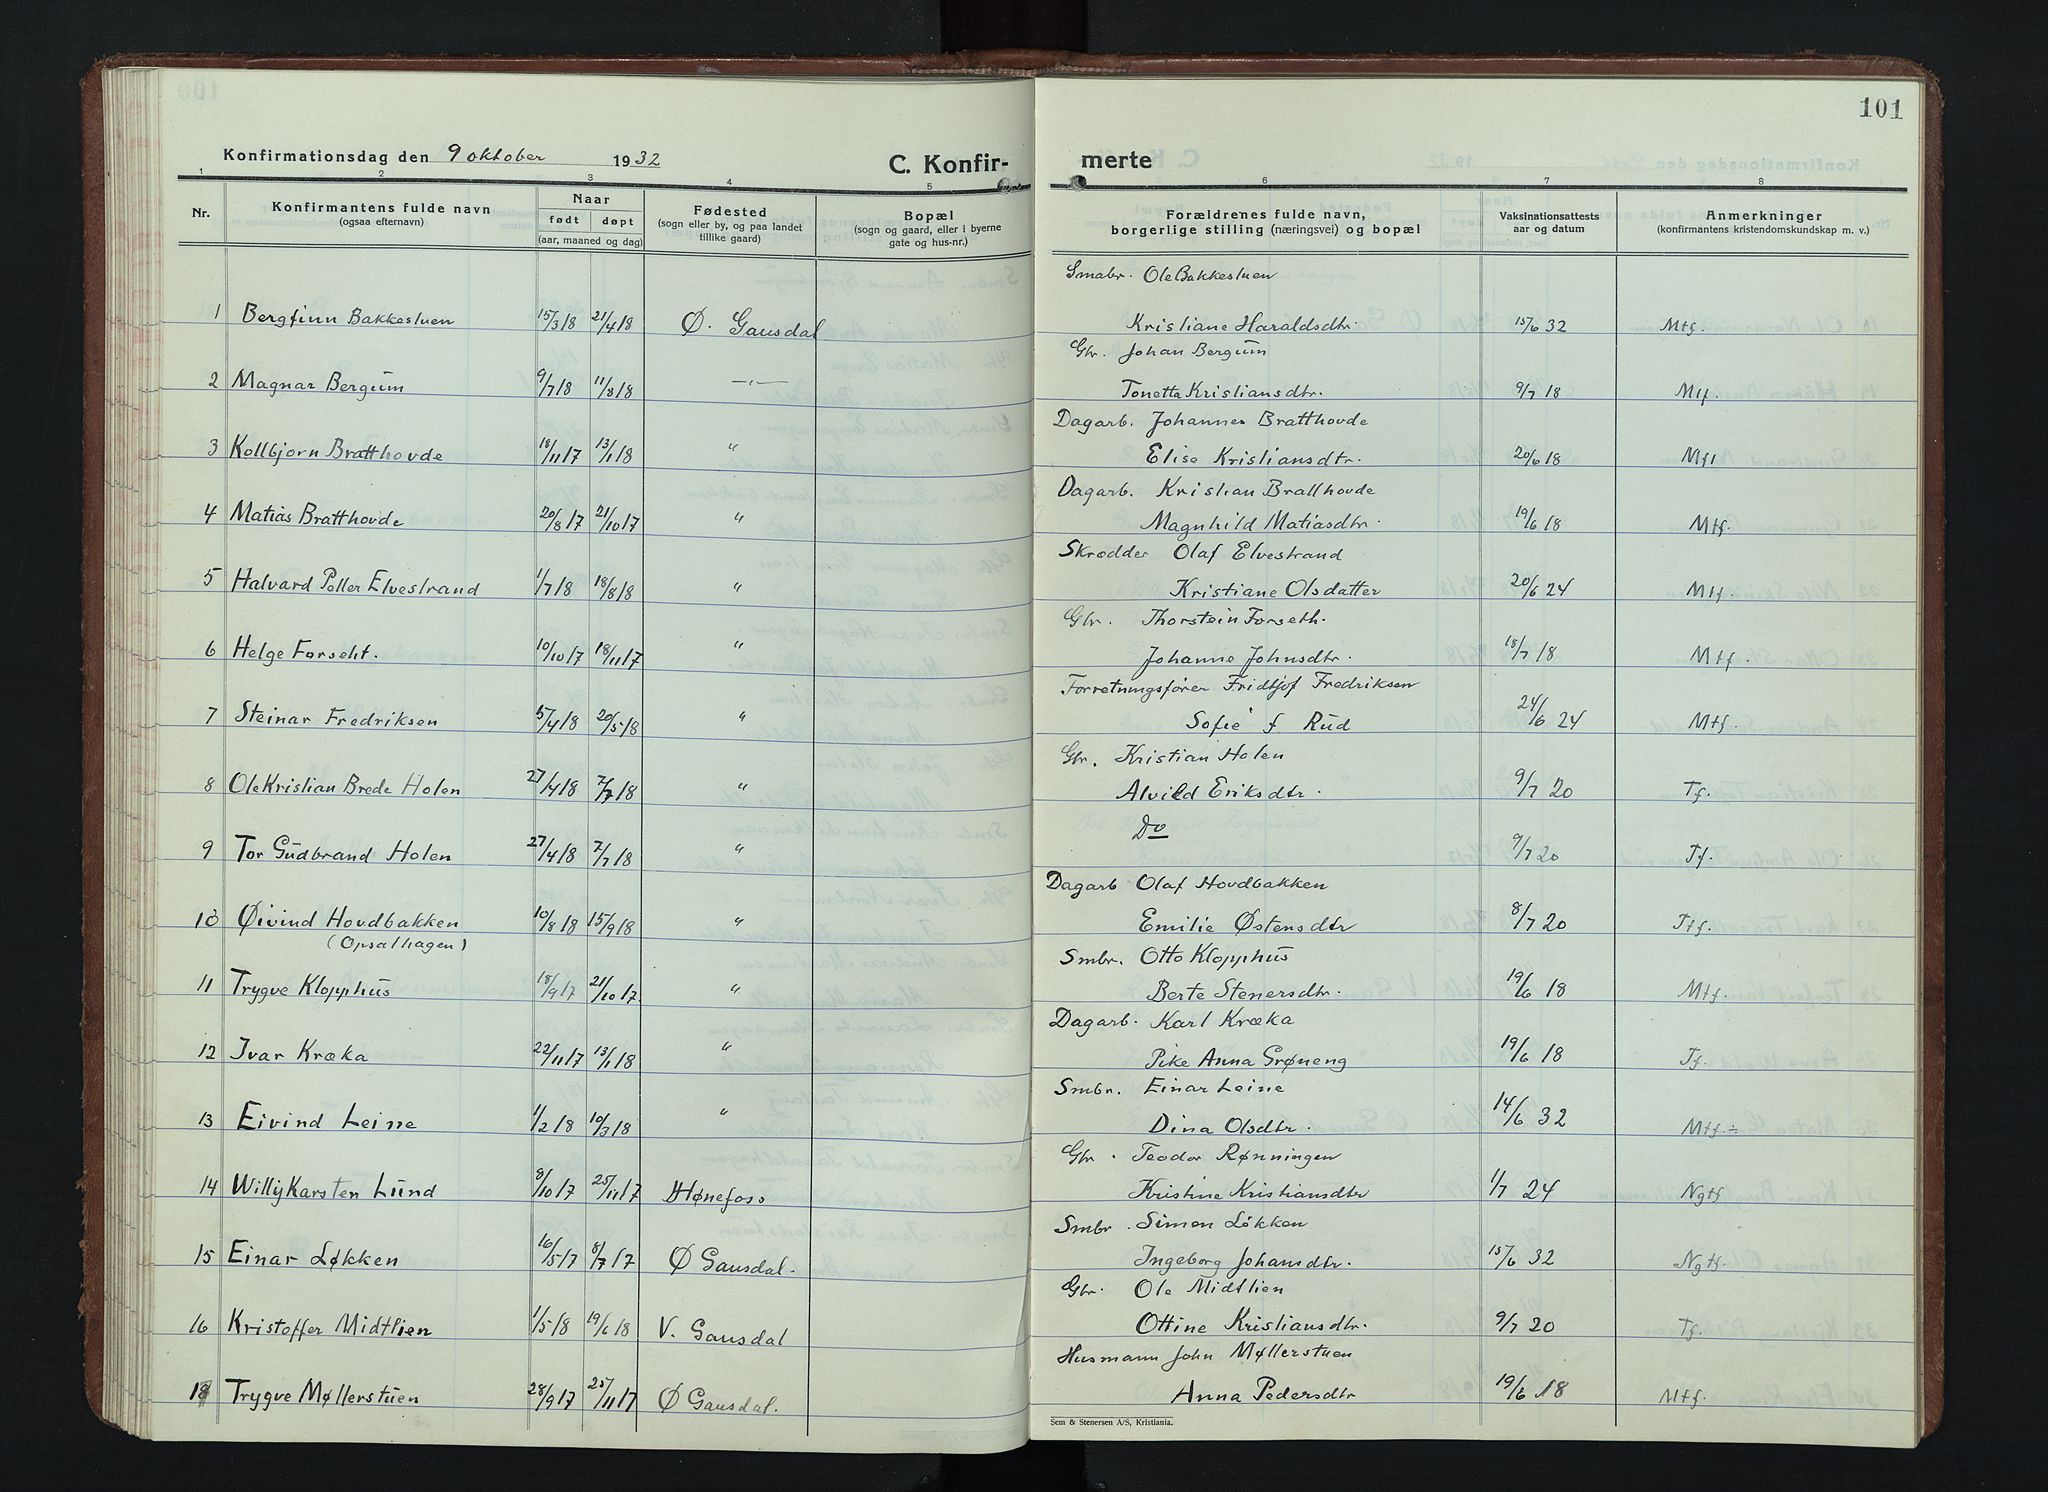 101
Konfirmationsdag den 9 oktober 1932
C. Konfir-
merte
1 2 3 4 5 6 7 8
Nr.
Konfirmantens fulde navn
(ogsaa efternavn)
Naar
født døpt
(aar, maaned og dag)
Fødested
(sogn eller by, og paa landet
tillike gaard)
Bopæl
(sogn og gaard, eller i byerne
gate og hus-nr.)
Forældrenes fulde navn,
borgerlige stilling (næringsvei) og bopæl
Vaksinationsattests
aar og datum
Anmerkninger
(konfirmantens kristendomskundskap m. v.)
Smabr. Ole Bakkestuen
1 Bergfinn Bakkestuen 15/3 18 21/4 18 Ø. Gausdal Kristiane Haraldsdtr. 15/6 32 Mtf.
Gbr. Johan Bergum
2 Magnar Bergum 9/7 18 11/8 18 —"— Tonetta Kristiansdtr. 9/7 18 Mtf.
Dagarb. Johannes Bratthovde
3 Kollbjorn Bratthovde 18/11 17 13/1 18 " Elise Kristiansdtr. 20/6 18 Mtf
Dagarb. Kristian Bratthovde
4 Matias Bratthovde 20/8 17 21/10 17 " Magnhild Matiasdtr. 19/6 18 Mtf.
Skrædder Olaf Elvestrand
5 Halvard Petter Elvestrand 1/7 18 18/8 18 " Kristiane Olsdatter 20/6 24 Mtf.
Gbr. Thorstein Forseth.
6 Helge Forseht. 10/10 17 18/11 17 " Johanne Johnsdtr. 18/7 18 Mtf.
Forretningsfører Fridtjof Fredriksen
7 Steinar Fredriksen 5/4 18 20/5 18 " Sofie f Rud 24/6 24 Mtf.
Gbr. Kristian Holen
8 Ole Kristian Brede Holen 27/4 18 7/7 18 " Alvild Eriksdtr. 9/7 20 Tf.
Do
9 Tor Gudbrand Holen 27/4 18 7/7 18 " 9/7 20 Tf.
Dagarb Olaf Hovdbakken
10 Øivind Hovdbakken 10/8 18 15/9 18 " Emilie Østensdtr 8/7 20 Ttf.
(Opsalhagen)
Smbr. Otto Klopphus
11 Trygve Klopphus 18/9 17 21/10 17. " Berte Stenersdtr. 19/6 18 Mtf.
Dagarb. Karl Kræka
12 Ivar Kræka 22/11 17 13/1 18 " Pike Anna Grøneng 19/6 18 Tf.
Smbr. Einar Leine
13 Eivind Leine 1/2 18 10/3 18 " Dina Olsdtr. 14/6 32 Mtf. ÷
Gbr. Teodor Rønningen
14 Willy Karsten Lund 8/10 17 25/11 17 Hønefoss Kristine Kristiansdtr 1/7 24 Ngtf.
Smbr. Simen Løkken
15 Einar Løkken 16/5 17 8/7 17 Ø Gausdal. Ingeborg Johansdtr. 15/6 32 Ngtf.
Gbr. Ole Midtlien
16 Kristoffer Midtlien 1/5 18 19/6 18 V. Gausdal Ottine Kristiansdtr. 9/7 20 Tf.
Husmann John Møllerstuen
Trygve Møllerstuen 28/9 17 25/11 17 Ø Gausdal. Anna Pedersdtr 19/6 18 Mtf.
Sem & Stenersen A/S, Kristiania.